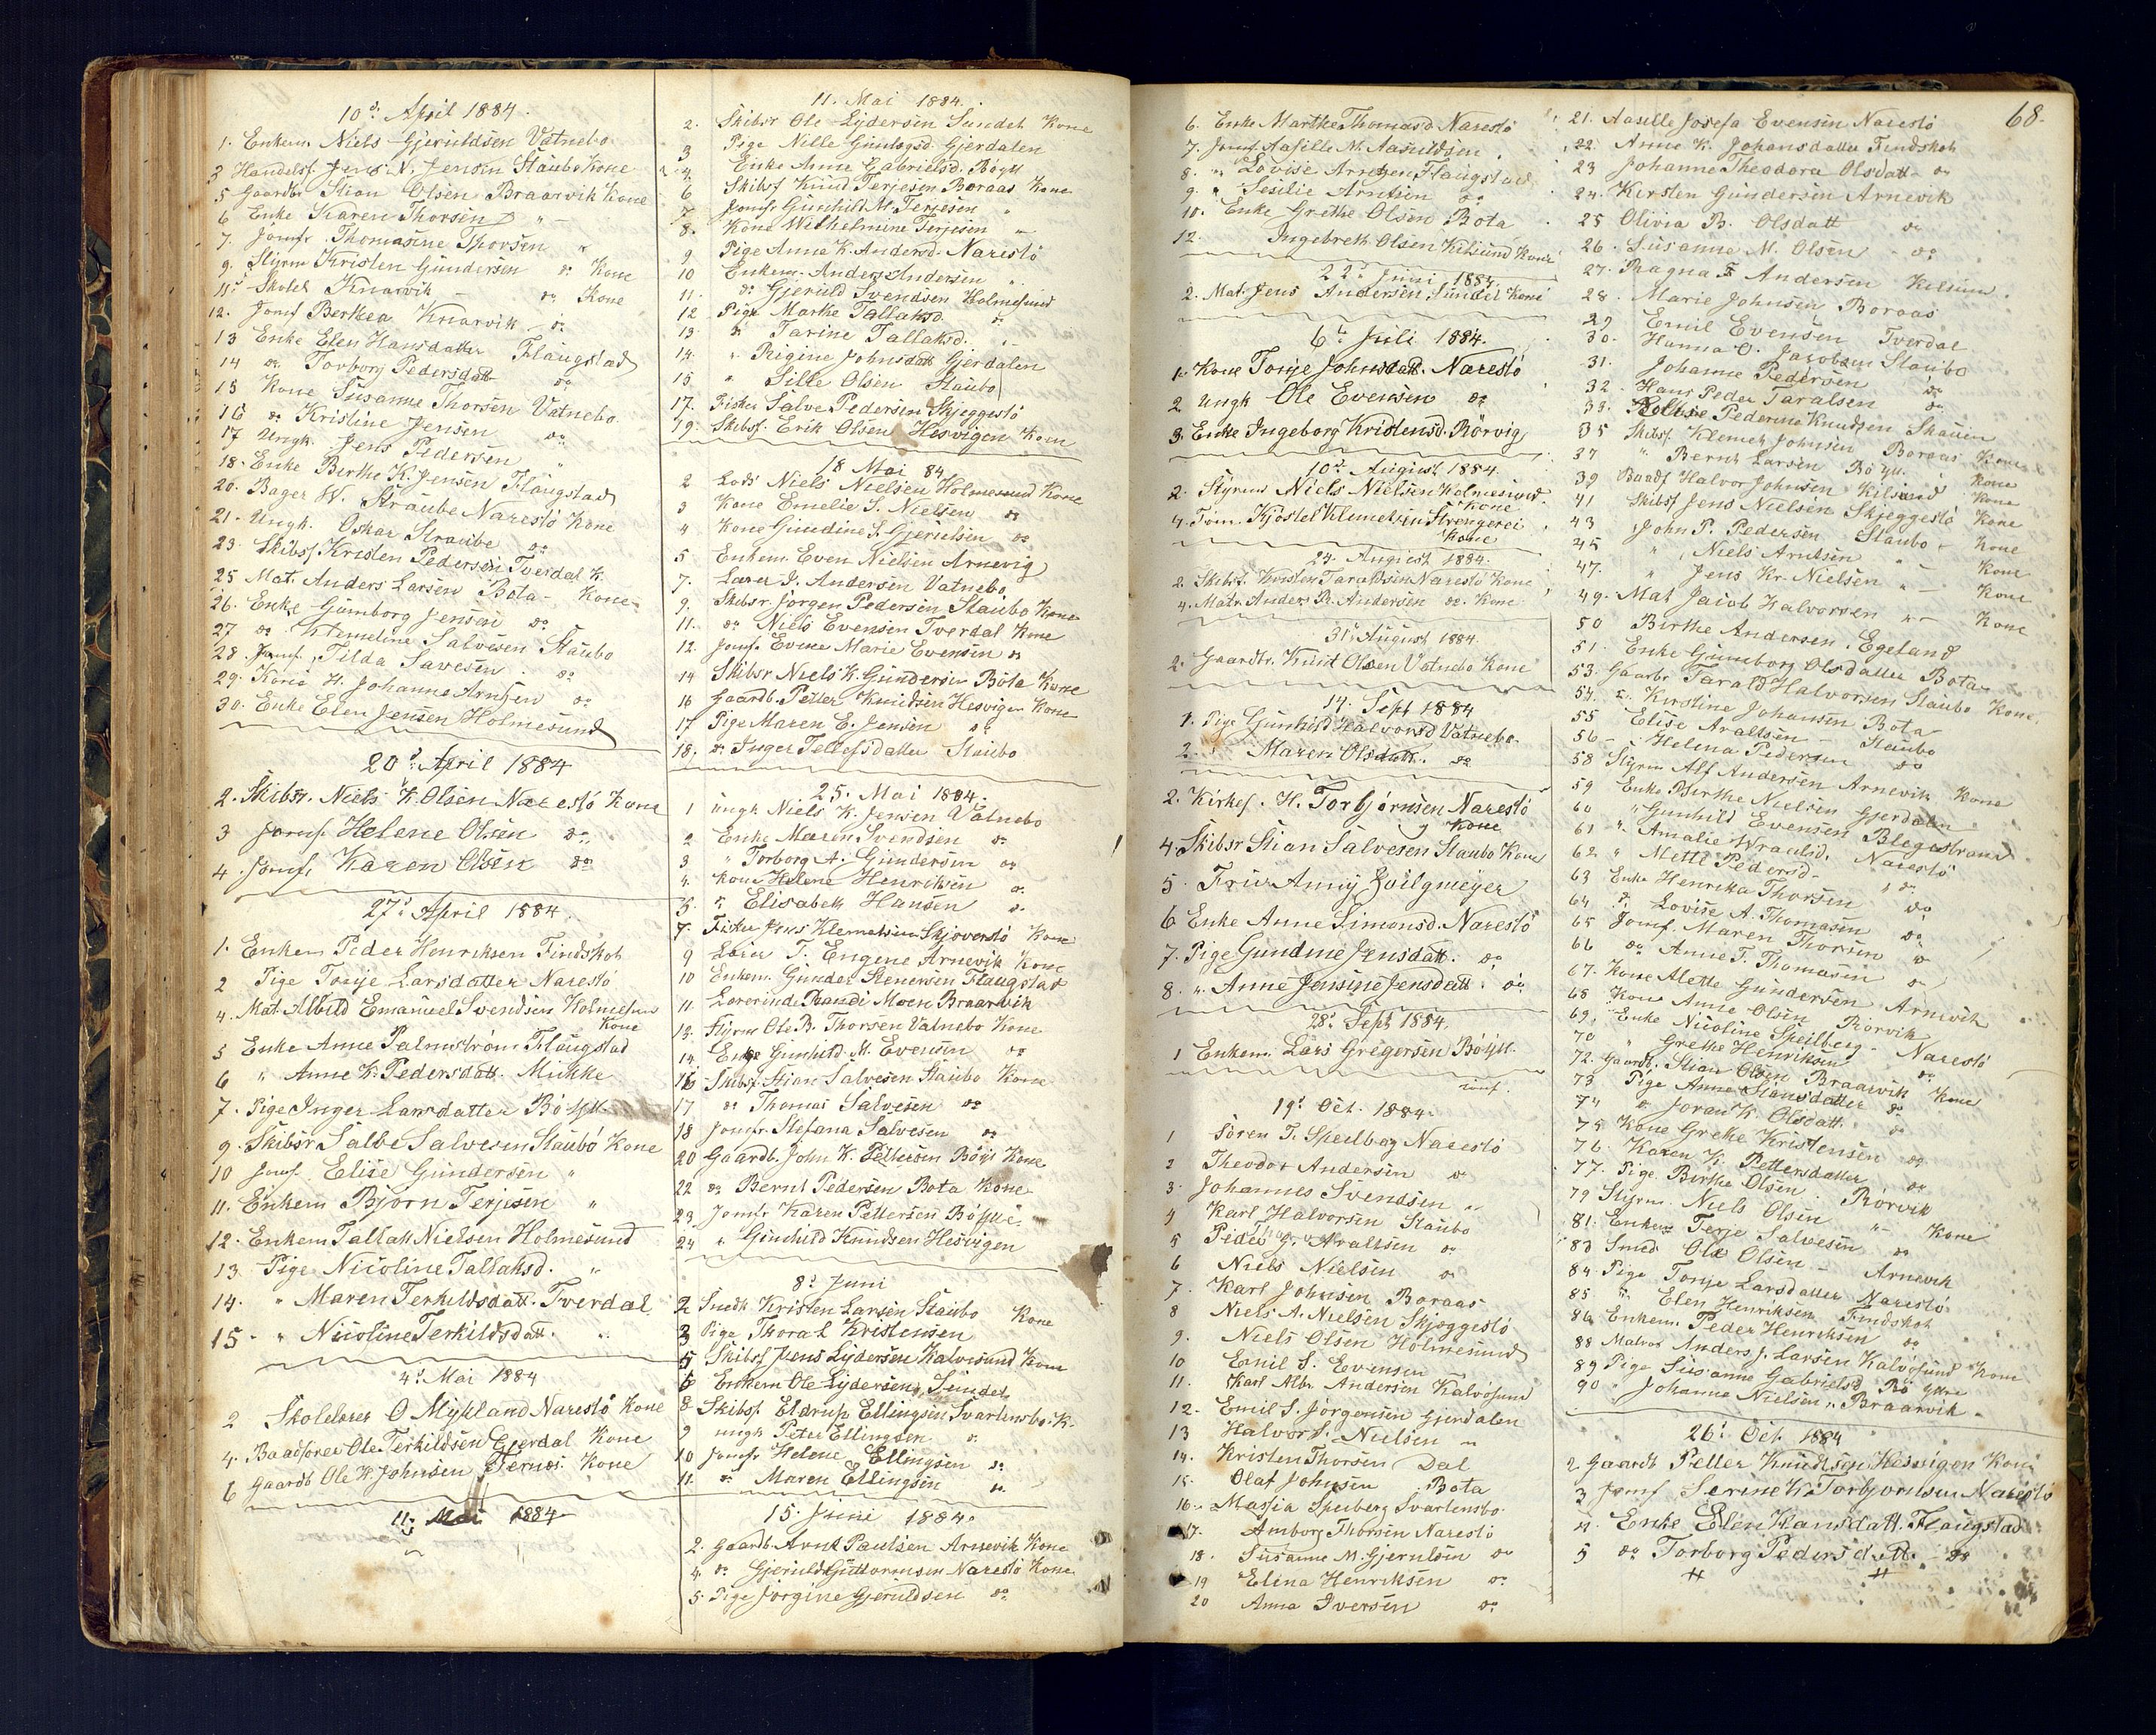 10de April 1884.
1. Enkem. Niels Gjeruldsen Vatnebo
3 Handelsf. Jens N. Jensen Staubo Kone
5 Gaardbr Stian Olsen Braarvik Kone
6 Enke Karen Thorsen " –
7. Jomfr. Thomasine Thorsen "
9. Styrm Kristen Gundersen do Kone
11. Skolel Knarvik – do Kone
12. Jomf Berthea Knarvik do
13 Enke Elen Hansdatter Flaugstad
14 do Torborg Pedersdatt do
15 Kone Susanne Thorsen Vatnebo
16 do Kristine Jensen do
17 Ungk. Jens Pedersen "
18. Enke Birthe K. Jensen Flaugstad
20. Bager W. Straube Narestö Kone
21. Ungk. Oskar Straube do
23. Skibsf Kristen Pedersen Tverdal K.
25 Mat. Anders Larsen Bota – Kone
26. Enke Gumborg Jensen do
27 do Klemeline Salvesen Staubo
28. Jomf. Tilda Savesen do
29. Kone H. Johanne Arntzen do
30. Enke Elen Jensen Holmesund
20de April 1884
2. Skibsr. Niels K. Olsen Narestö Kone
3 Jomf. Helene Olsen do
4 Jomf. Karen Olsen do
27de April 1884.
1. Enkem Peder Henriksen Findskoh
2 Pige Tonje Larsdatter Narestö
4. Mat. Albild Emanuel Svendsen Holmesun
Kone
5 Enke Anne Palmström Flaugstad
6 " Anne K. Pedersdatt. Mukke
7. Pige Inger Larsdatter Böyll.
9. Skibsr Salve Salvesen Staubö Kone
10 Jomf. Elise Gundersen "
11. Enkem Bjorn Terjesen "
12. Enkem Tallak Nielsen Holmesund
13. Pige Nicoline Tallaksd. "
14. " Maren Terkildsdatt. Tverdal
15. " Nicoline Terkildsdatt. "
4de Mai 1884
2 Skolelærer O Mykland Narestö Kone
4. Baadförer Ole Terkildsen Gjerdal Kone
6 Gaardb Ole K. Johnsen Ternes. Kone
11. Mai 1884
11. Mai 1884.
2. Skibsr Ole Lydersen Sundet Kone
3 Pige Nille Gunlogsd. Gjerdalen
4. Enke Anne Gabrielsd. Böyll
6 Skibsf Knud Terjesen Boraas Kone
7 Jomfr Gunhild M. Terjesen "
8. Kone Wilhelmine Terjesen "
9 Pige Anne K. Andersd. Narestö
10 Enkem. Anders Andersen "
11. do Gjeruld Svendsen Holmesund
12 Pige Marthe Tallaksd. do
13. do Tarine Tallaksd.
14. " Rigine Johnsdatt Gjerdalen
15 " Sille Olsen Staubo
17. Fisker Salve Pedersen Skjeggestö
19. Skibsf. Erik Olsen Hesvigen Koen
18 Mai 84
2 Lods Niels Nielsen Holmesund Kone
3 Kone Emelie S. Nielsen do
4 Kone Gundine S. Gjerulsen do
5 Enkem. Even Nielsen Arnevig
7. Lærer J. Andersen Vatnebo
9. Skibsr. Jörgen Pedersen Staubo Kone
11. do Niels Evensen Tverdal Kone
12. Jomf. Evine Marie Evensen do
14 Skibsr Niels K. Gundersen Bota Kone
16 Gaardb. Petter Knudsen Hesvigen Kone
17 Pige Maren E. Jensen do
18. do Inger Tellefsdatter Staubo
25. Mai 1884.
1 ungk Niels K. Jensen Vatnebo
2 Enke Maren Svendsen do
3 " Torborg A. Gundersen do
4. Kone Helene Henriksen do
5. " Elisabeth Hansen do
7. Fisker Jens Klemetsen Skjoverstö Kone
9 Lærer T. Engene Arnevik Kone
10 Enkem. Gunder Stenersen Flaugstad
11. Lærerinde Randi Moen Braarvik
13. Styrm Ole B. Thorsen Vatnebo Kone
14. Enke Gunhild M. Evensen do
16 Skibsf. Stian Salvesen Staubo Kone
17 do Thomas Salvesen do
18 Jomfr. Stefana Salvesen do
20 Gaardb. John K. Pettersen Böyl Kone
22 do Bernt Pedersen Bota Kone
23. Jomfr Karen Pettersen Böylle
24 " Gunhild Knudsen Hesvigen
8de Juni
2 Smeth Kristen Larsen Staubo Kone
3 Pige Thora L Kristensen
5 Skibsf Jens Lydersen Kalvesund Kone
6 Enkem Ole Lydersen, Sundet
8 Skibsf. Eldrup Ellingsen Svartensbo K.
9 ungk Peter Ellingsen do
10 Jomfr Helene Ellingsen do
11. do Maren Ellingsen do
15. Juni 1884.
2. Gaardb. Arnt Paulsen Arnevik Kone
4. do Gjeruld Guttormsen Narestö Kone
5. Pige Jorgine Gjeruldsen do
68.
6. Enke Marthe Thomasd Narestö
7. Jomf. Aasille M. Aasuldsen
8. " Lovise Arntzen Flaugstad
9. " Sesilie Arntsen do
10. Enke Grethe Olsen Bota
12. Ingebreth Olsen Kilsund Kone
22de Juni 1884.
2. Mat. Jens Andersen, Sundet Kone
6te Juli 1884.
1. Kone Tonje Johnsdatt. Narestö
2 Ungk Ole Evensen do
3. Enke Ingeborg Kristensd. Rörvig
10de August 1884.
2. Styrm Niels Nielsen Holmesund
Kone
4. Töm. Kjöstel Klemetsen Strengerei
Kone
24. August 1884.
2. Skibsf. Kristen Taraldsen Narestö Kone
4. Matr. Anders B. Andersen do. Kone
31. August 1884.
2. Gaardbr. Knut Olsen Vatnebo Kone
14. Sept 1884
1. Pige Gunhild Halvorsd Vatnebo.
2. " Maren Olsdatt. do
2. Kirkes. H. Torbjörnsen Narestö
Kone
4. Skibsr Stian Salvesen Staubo Kone
5. Fru Anny Zoilgmeyer
6 Enke Anne Simonsd. Narestö
7. Pige Gundine Jensdatt. do
8. " Anne Jensine Jensdatt. do
28. Sept 1884.
1 Enkem. Lars Gregersen Böyll.
19de Oct. 1884.
1 Sören T. Speilberg Narestö
2 Theodor Andersen do
3. Johannes Svendsen "
4 Karl Halvorsen Staubo
5 Peder G. Araltsen do
6 Niels Nielsen do
7. Karl Johnsen Boraas
8 Niels A. Nielsen Skjeggestö
9. Niels Olsen Holmesund
10 Emil S. Evensen
11. Karl Albr. Andersen Kalvösund
12. Emil S. Jörgensen Gjerdalen
13 Halvor S. Nielsen "
14. Kristen Thorsen Dal
15. Olaf Johnsen Bota
16. Massia Speiberg Svartensbo
17. Amborg Thorsen Narestö
18. Susanne M. Gjerulsen do
19 Elina Henriksen do
20 Anna Iversen do
21. Aaselle Josefa Evensen Narestö
22. Anne K. Johansdatter Findskoh
23 Johanne Theodora Olsdatt do
24. Kirsten Gundersen Arnevik
25 Olivia B. Olsdatt do
26. Susanne M. Olsen do
27. Ragna Andersen Kilsund
28. Marie Johnsen Boraas
29 Emil Evensen Tverdal
30. Hanna O. Jacobsen Staubo
31. Johanne Pedersen do
32. Hans Peder Taralsen do
33. Pederine Knudsen Skauen
35 Skibsf. Klemet Johnsen Boraas Kone
37 " Bernt Larsen Böyll. Kone
39 Baadf Halvor Johnsen Kilsund Kone
41 Skibsf Jens Nielsen Skjeggestö Kone
43 " John P. Pedersen Staubo – Kone
45 " Niels Arntsen " – Kone
47. " Jens Kr. Nielsen " – Kone
49. Mat Jacob Halvorsen " – Kone
50 Birthe Andersen. Egeland
51. Enke Gumborg Olsdatter Bota
53. Gaarbr Tarald Halvorsen Staubo Kone
54. " Kirstine Johansen Bota
55 Elise Araltsen – Staubo
56 – Helena Pedersen do
58 Styrm Alf Andersen Arnevik Kone
59 Enke Birthe Nielsen Gjerdalen
60 " Gunhild Evensen Blegestrand
61 " Amalie Wraalsd. Narestö
62 " Mette Pedersd – " do
63 Enke Henrika Thorsen do
64 " Lovise A. Thomasen do
65 Jomf. Maren Thorsen do
66 do Anne T. Thomasen do
67. Kone Alette Gundersen Arnevik
68 Kone Anne Olsen Rörvik
69. Enke Nicoline Speilberg – Narestö
70 " Grethe Henriksen do
72. Gaardb. Stian Olsen Braarvik Kone
73 Pige Anne Stiansdatter do
74 " Joran K. Olsdatt. do
75 Kone Grethe Kristensen do
76 Karen K. Pettersdatter do
77. Pige Birthe Olsen Rörvik
79 Styrm. Niels Olsen " – Kone
81. Enkem Terje Salvesen do
83 Smed Ole Olsen – Arnevik
84. Pige Tonje Larsdatter Narestö
85 " Elen Henriksen Findskoh
86 Enkem. Peder Henriksen do
88 Matros Anders J. Larsen Kalvösund Kone
89 Pige Susanne Gabrielsd. Böylle
90 " Johanne Nielsen Braarvik
26. Oct. 1884
2 Gaardb Petter Knudsen Hesvigen Kone
3 Jomf Serine K. Torbjornsen Narestö
4. Enke Elen Hansdatt. Flaugstad
5 do Torborg Pedersdatt. do